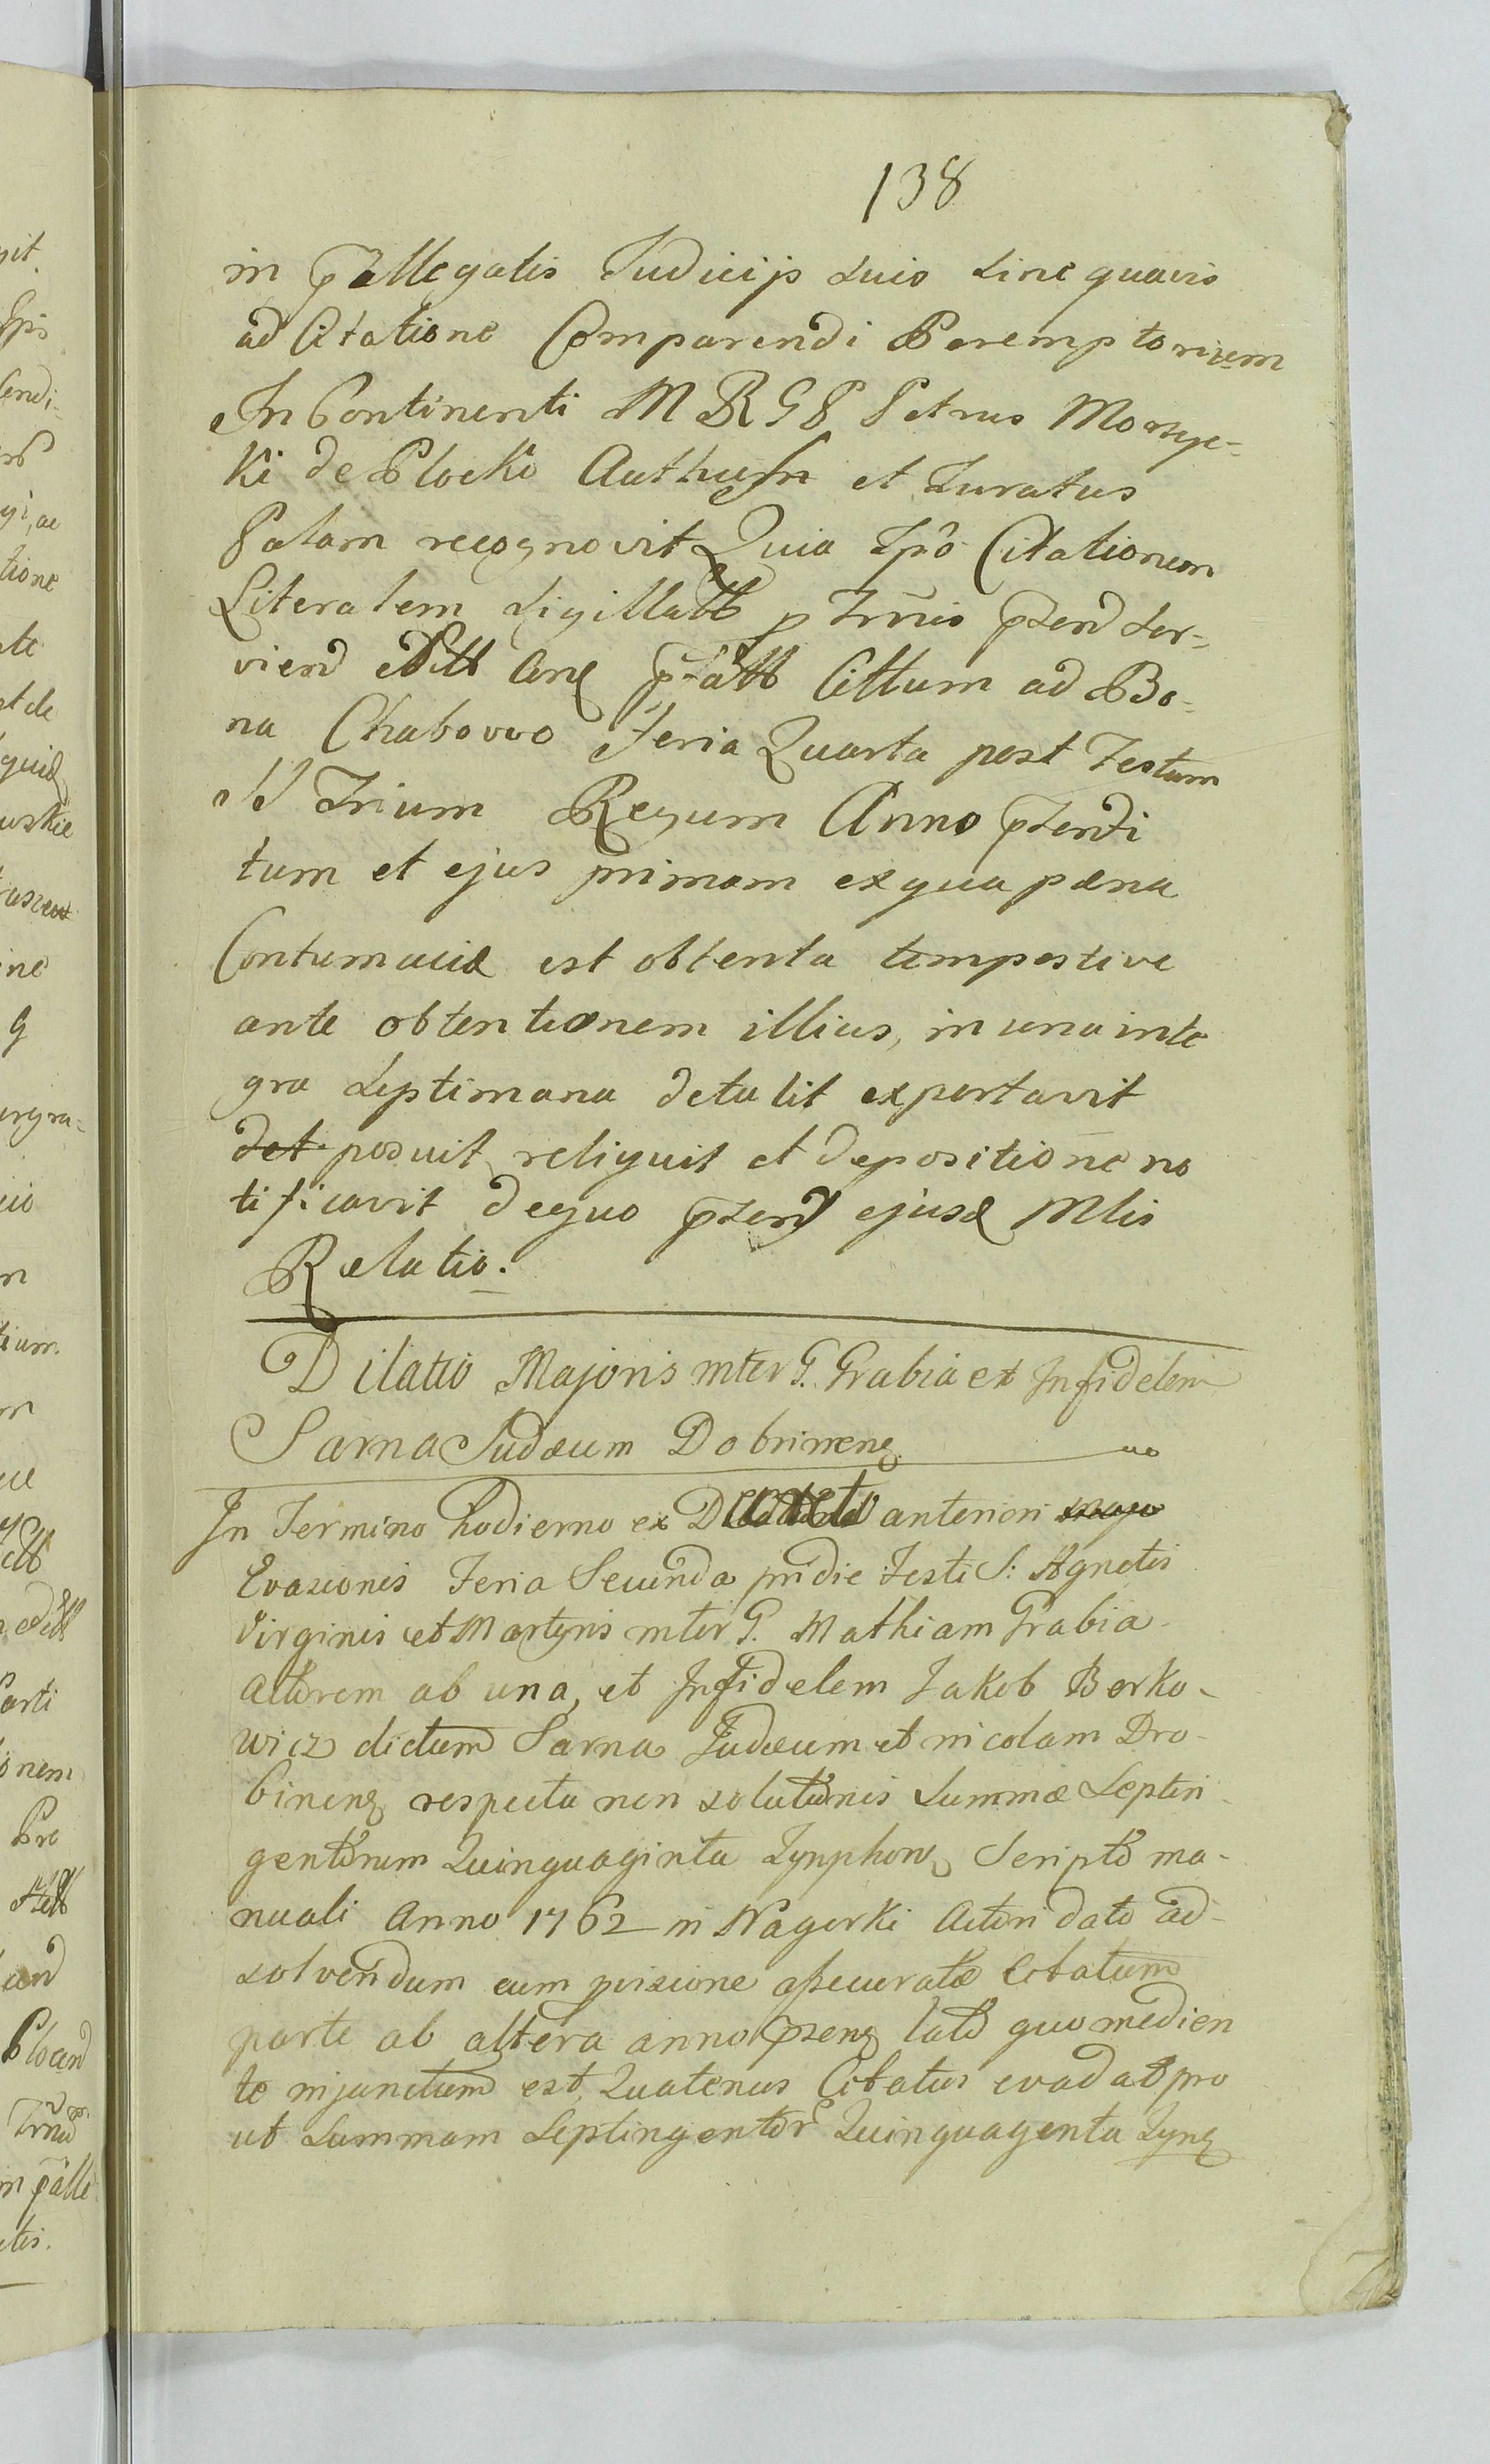 138
in p̃allegatis Judicijs suis sine quavis
ad Citatione Comparendi Peremptorium
In Continenti M R G P Petrus Morzyc-
ki de Plocko Authen et Juratus
Palam recognovit Quia Ipse Citationem
Literalem sigillatt p Trmis p̃sen ser-
vien Editt Anq p̃fatt Cittum ad Bo-
na Chabowo Feria Quarta post Festum
SS Trium Regum Anno p̃senti
tum et ejus primam ex qua pæna
Contumaciæ est obtenta tempestive
ante obtentionem illius, in una inte
gra septimana detulit exportavit
det posuit reliquit et depositione no
tificavit de quo p̃sen ejusd Mlis
Relatio.
Dilatio Majoris inter G. Grabia et Infidelem
Sarna Judæum Dobrinenq
In Termino hodierno ex Decreto anteriori majo
Evasionis Feria Secunda pridie Festi S: Agnetis
Virginis et Martyris inter G. Mathiam Grabia
Actorem ab una, et Infidelem Jakob Berko-
wicz dictum Sarna Judæum et incolam Dro-
binenq respectu non solutionis summæ septin-
gentorum Quinquaginta Tynphonq Scripto ma-
nuali Anno 1762 in Nagorki Actori dato ad
solvendum cum provisione assecuratæ Citatum
parte ab altera anno p̃senq lato quo medien
te injunctum est, Quatenus Citatus evadat pro
ut summam septingentor Quinquagenta Tynq